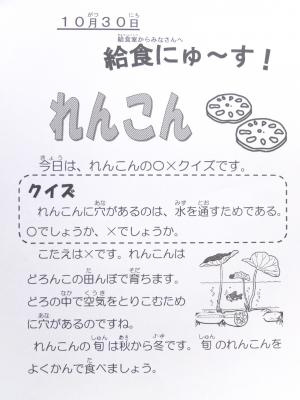 １０月３０日
給食室からみなさんへ
給食にゅ～す！
れんこん
今日は、れんこんの〇×クイズです。
クイズ
れんこんに穴があるのは、水を通すためである。
〇でしょうか、×でしょうか。
こたえは×です。れんこんは
どろんこの田んぼで育ちます。
どろの中で空気をとりこむため
に穴があるのですね。
れんこんの旬は秋から冬です。旬のれんこんを
よくかんで食べましょう。